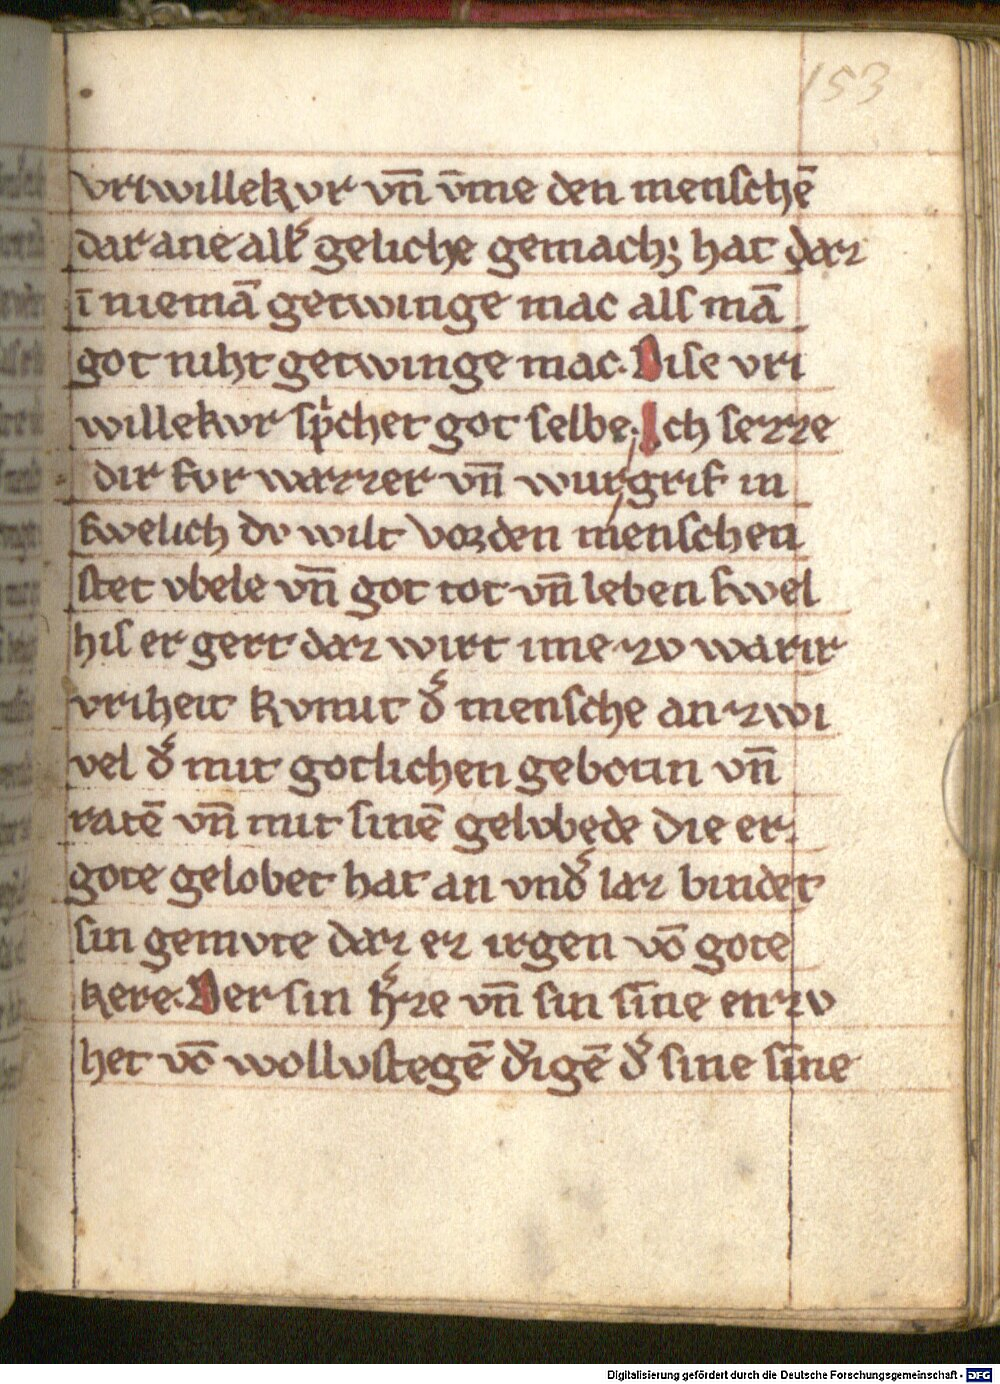 153
vriwillekvr vn̄ v̄me den menschē
dar ane alr̾ geliche gemachꝫ hat daz
ī niemā getwinge mac als mā
got niht getwinge mac. Dise vri
willekvr sp̍chet got selbe. Ich sezze
dir fvr wazzer vn̄ wur grif in
swelich dv wilt vor den menschen
stet vbele vn̄ got tot vn̄ leben swel
his er gert daz wirt ime zv war ir
vriheit kvmit d̾ mensche an zwi
vel d̾ mit gotlichen gebotin vn̄
ratē vn̄ mit sinē gelvbede die er
gote gelobet hat an vnd̾ laz bindet
sin gemvte daz ez irgen vō gote
kere. Der sin h̾ze vn̄ sin sīne en zv
het vō wollvstegē d̍igē d̾ sine sīne
Digitalisierung gefördert durch die Deutsche Forschungsgemeinschaft - DFG